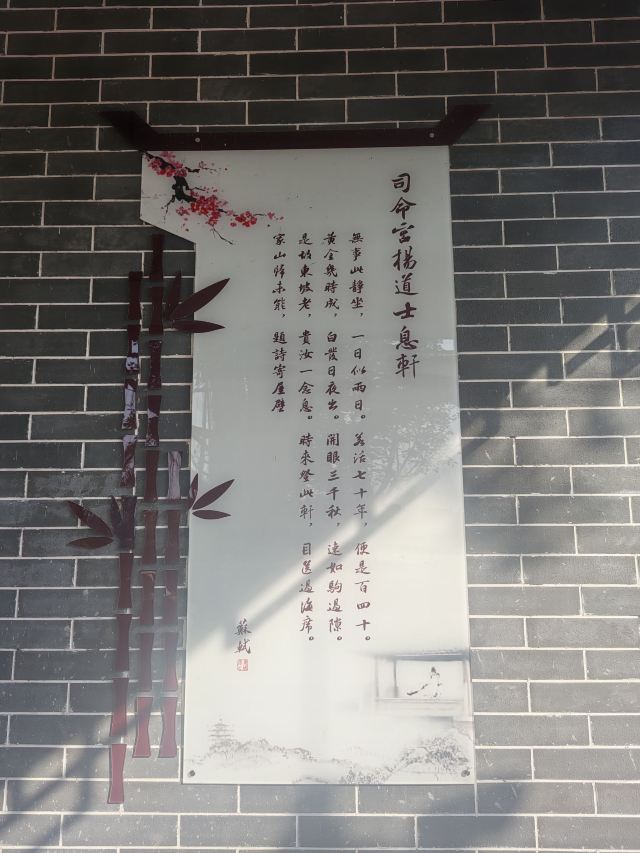 司命宮楊道士息軒
無事此靜坐，一日似兩日。若活七十年，便是百四十。
黃金幾時成，白發日夜出。開眼三千秋，速如駒過隙。
是故東坡老，貴汝一念息。時來登此軒，目送過海席。
家山歸未能，題詩寄屋壁
蘇軾